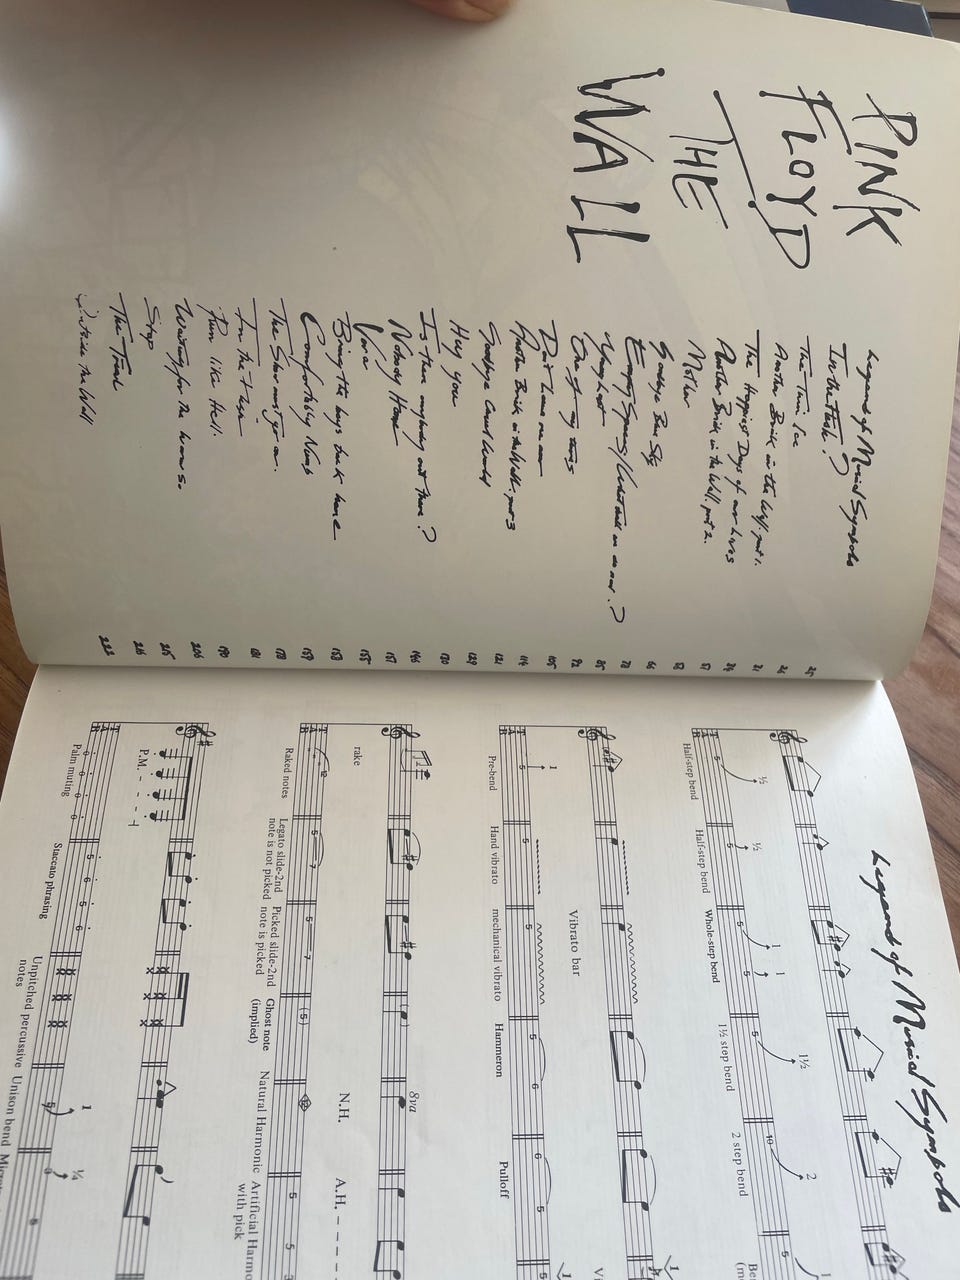 PINK
FLOYD
THE
WALL
Legend of Musical Symbols
In the Flesh?
The Thin Ice 25
Another Brick in the Wall, part 1. 26
The Happiest Days of our Lives 31
Another Brick in the Wall, part 2.
Mother
Goodbye Blue Sky
Empty Spaces/What shall we do now?
Young Lust
One of my turns
Don't Leave me now
Another Brick in the Wall, part 3
Goodbye Cruel World
Hey You
Is there anybody out there?
Nobody Home
Vera
Bring the boys back home
Comfortably Numb
The Show must go on.
In the Flesh
Run like Hell.
Waiting for the worms.
Stop
The Trial
Outside the Wall 222
Legend of Musical Symbols
½ ½ 1 1 1½ 2
Half-step bend Half-step bend Whole-step bend 1½ step bend 2 step bend
Vibrato bar
1
Pre-bend Hand vibrato mechanical vibrato Hammeron Pulloff
8va
rake N.H. A.H.
Raked notes Legato slide-2nd note is not picked Picked slide-2nd note is picked Ghost note (implied) Natural Harmonic Artificial Harmo
with pick
P.M.
1 ¼
Palm muting Staccato phrasing Unpitched percussive notes Unison bend